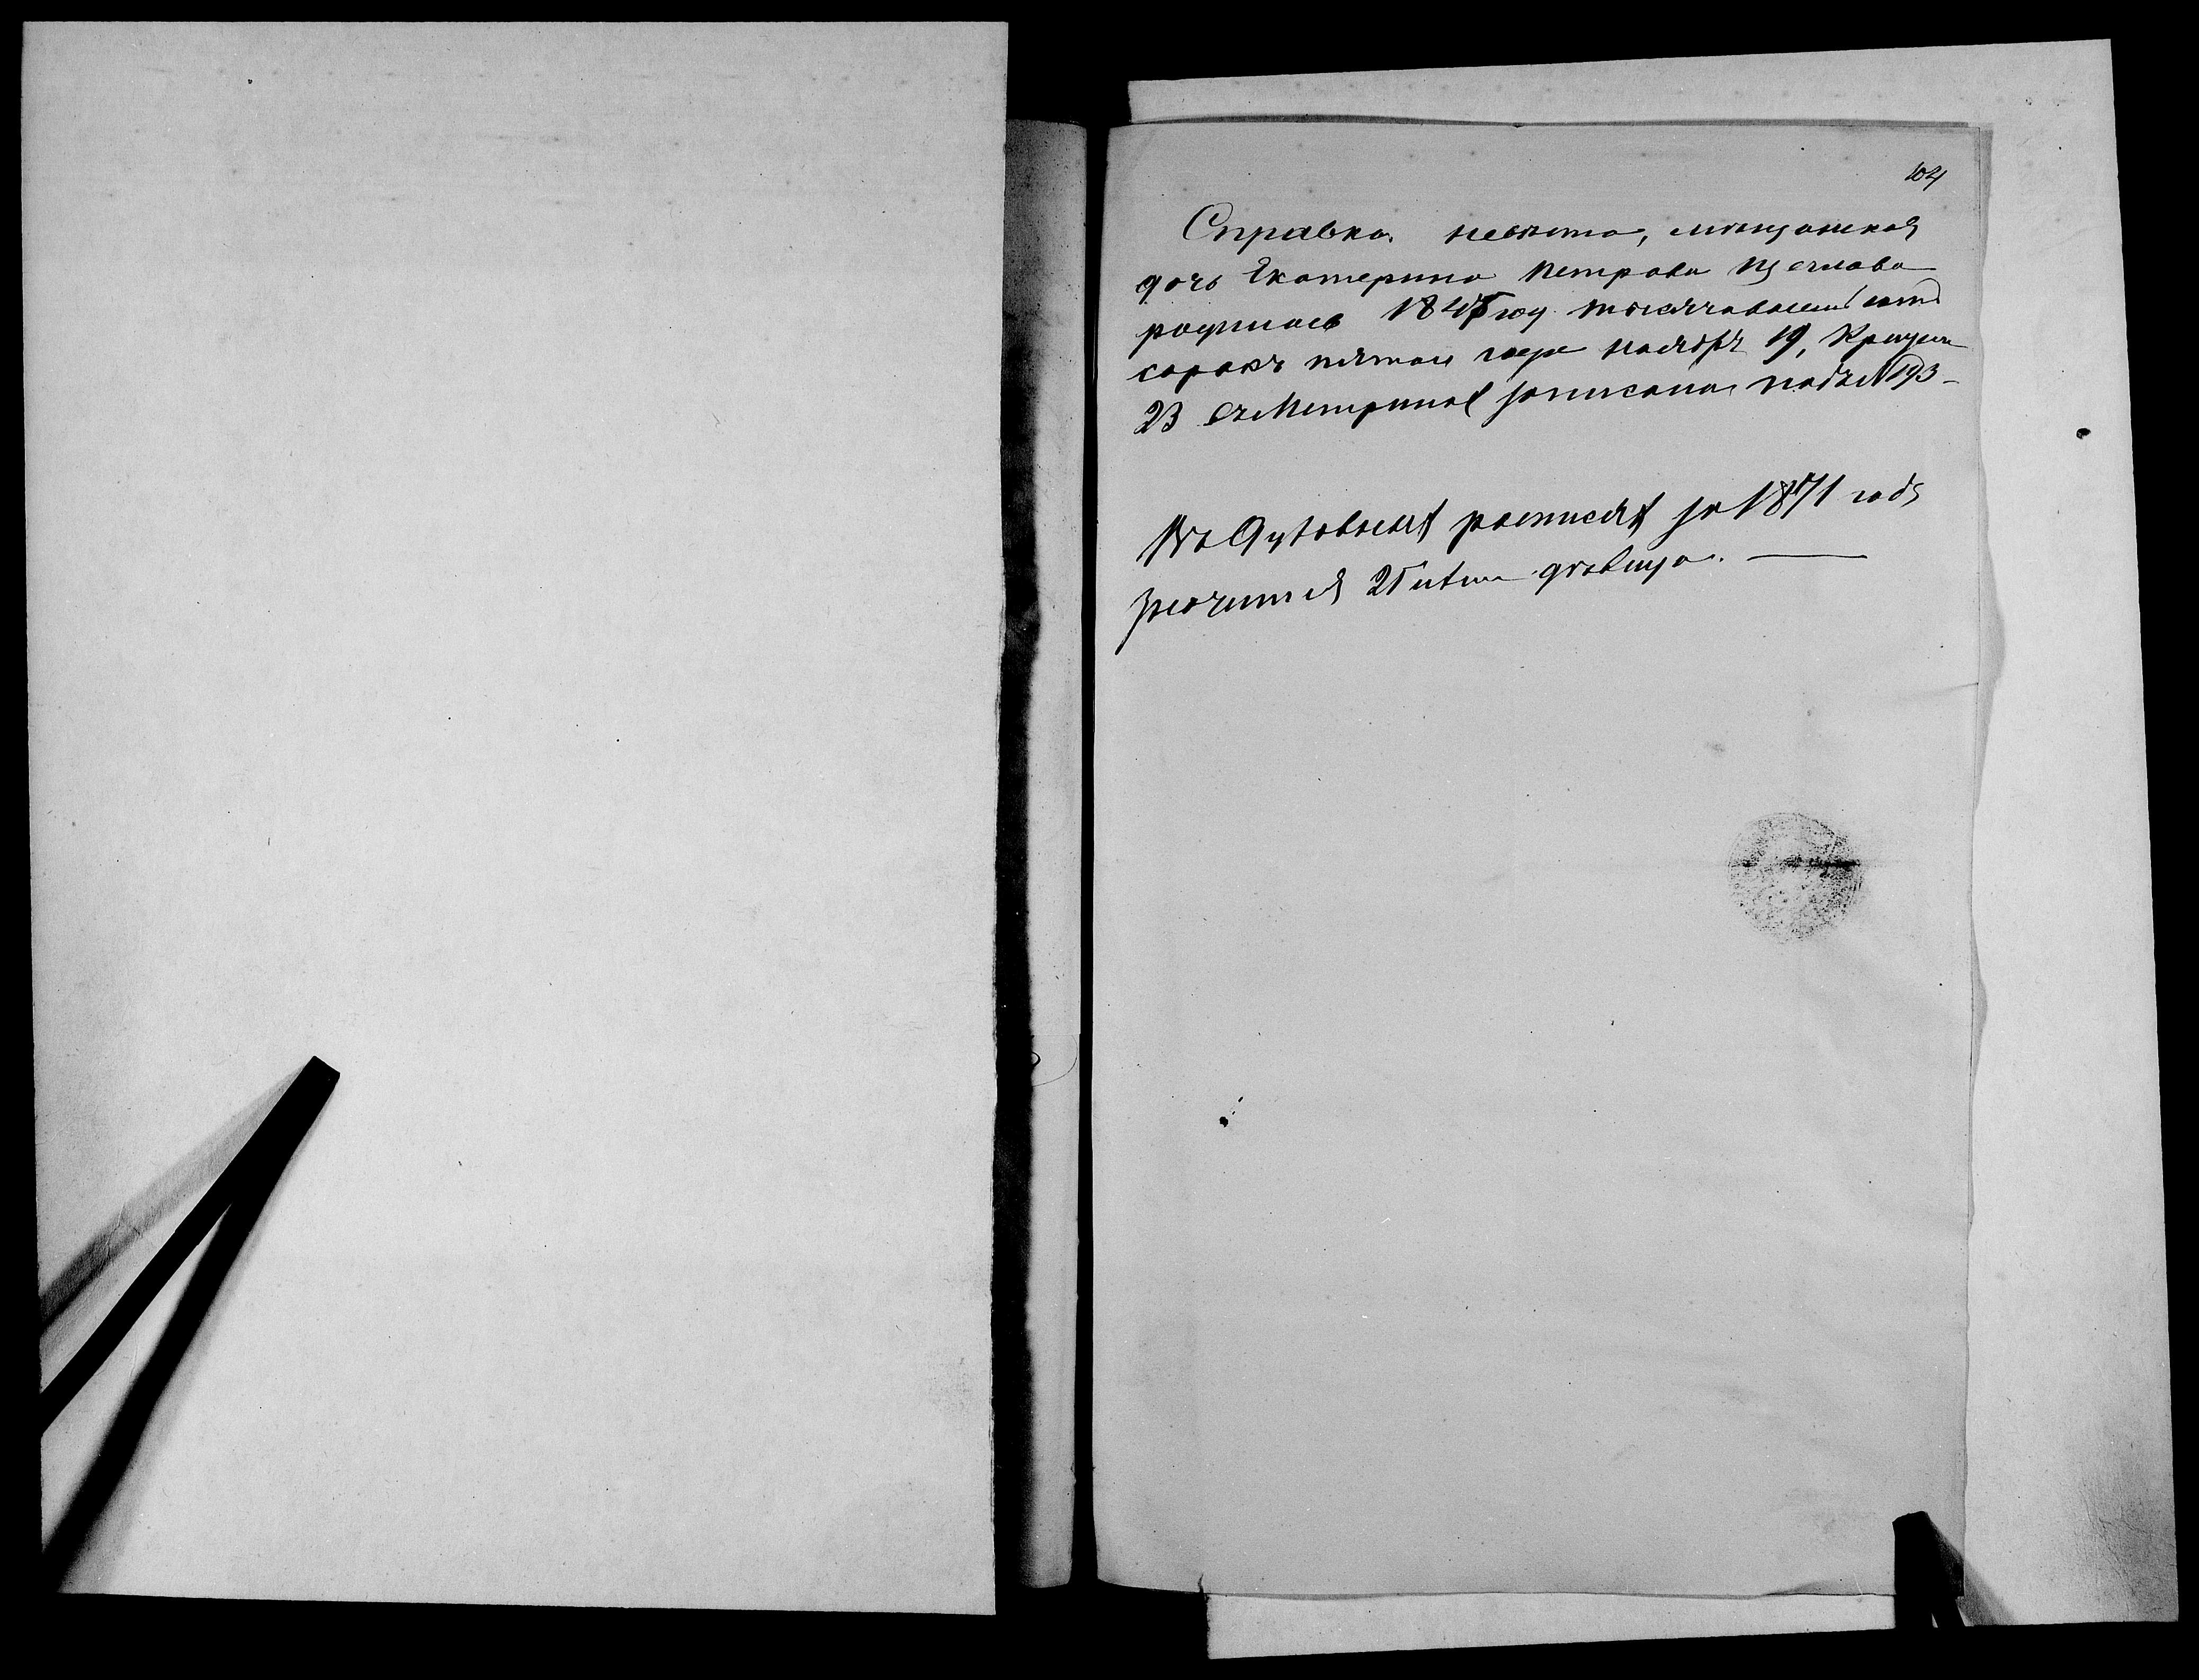 104
Справка. невѣста, мѣщанская
дочь Екатерина Петрова
родилась 1845 году тысячавосемьсотъ
сорокъ пятом годе ноября 19, Крещена
23 Метрикой записана подъ № 193 –
Въ Духовныхъ росписяхъ за 1871 годъ
значится 25 лѣтъ дѣвица. —